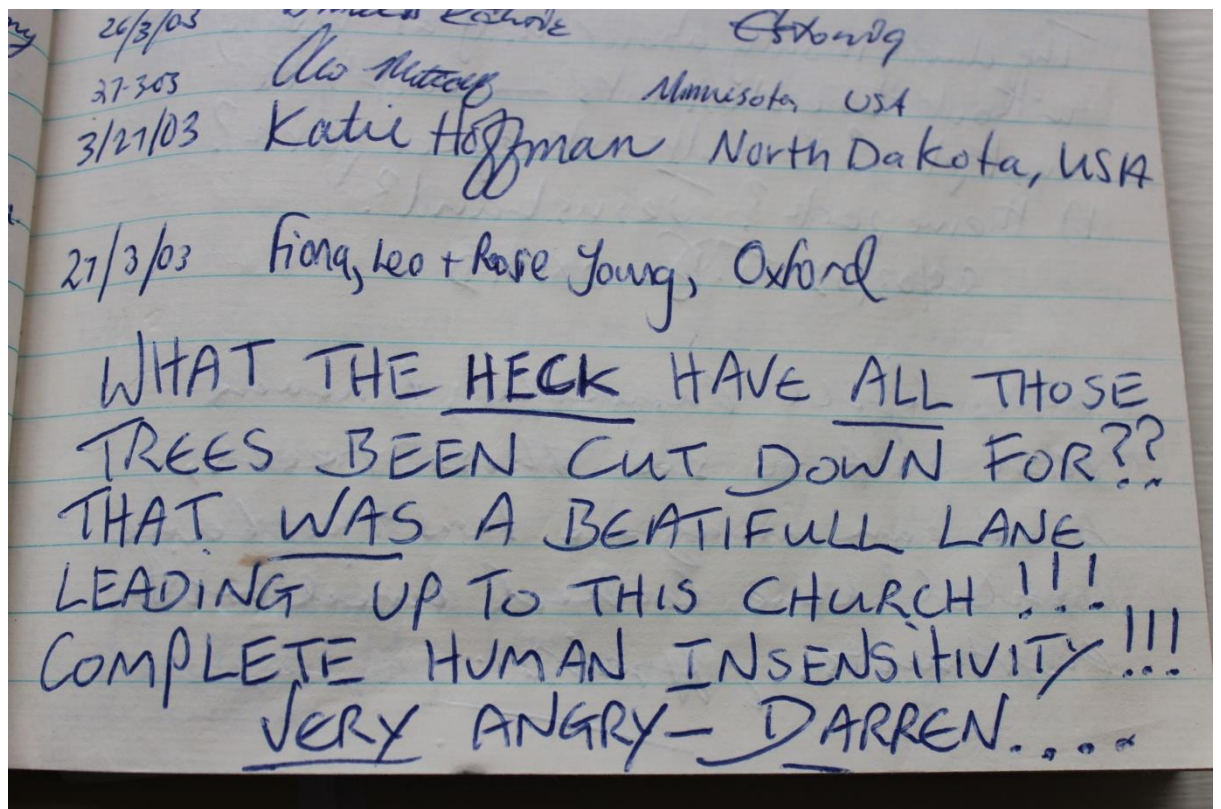 26/3/03
27-3-03 Minnisota, USA
3/27/03 Katie Hoffman North Dakota, USA
27/3/03 Fiona, Leo + Rose Young, Oxford
WHAT THE HECK HAVE ALL THOSE
TREES BEEN CUT DOWN FOR??
THAT WAS A BEATIFULL LANE
LEADING UP TO THIS CHURCH!!!
COMPLETE HUMAN INSENSITIVITY!!!
VERY ANGRY- DARREN....